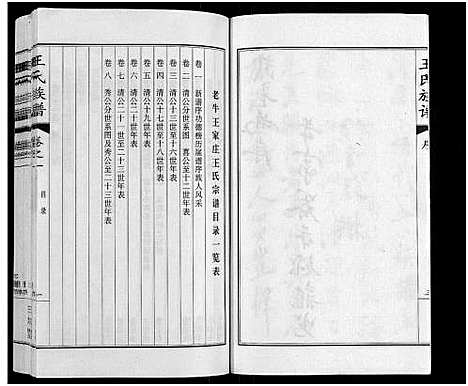 王氏族譜
序
老牛王家庄王氏宗谱目录一览表
卷一 新谱序功德榜历届谱序族人风采
卷二 清公分世系图 喜公至十二世年表
卷三 清公十三世至十六世年表
卷四 清公十七世至十八世年表
卷五 清公十九世年表
卷六 清公二十世年表
卷七 清公二十一世至二十三世年表
卷八 秀公分世系图及秀公至二十三世年表
王氏族譜
卷之一
目录
一